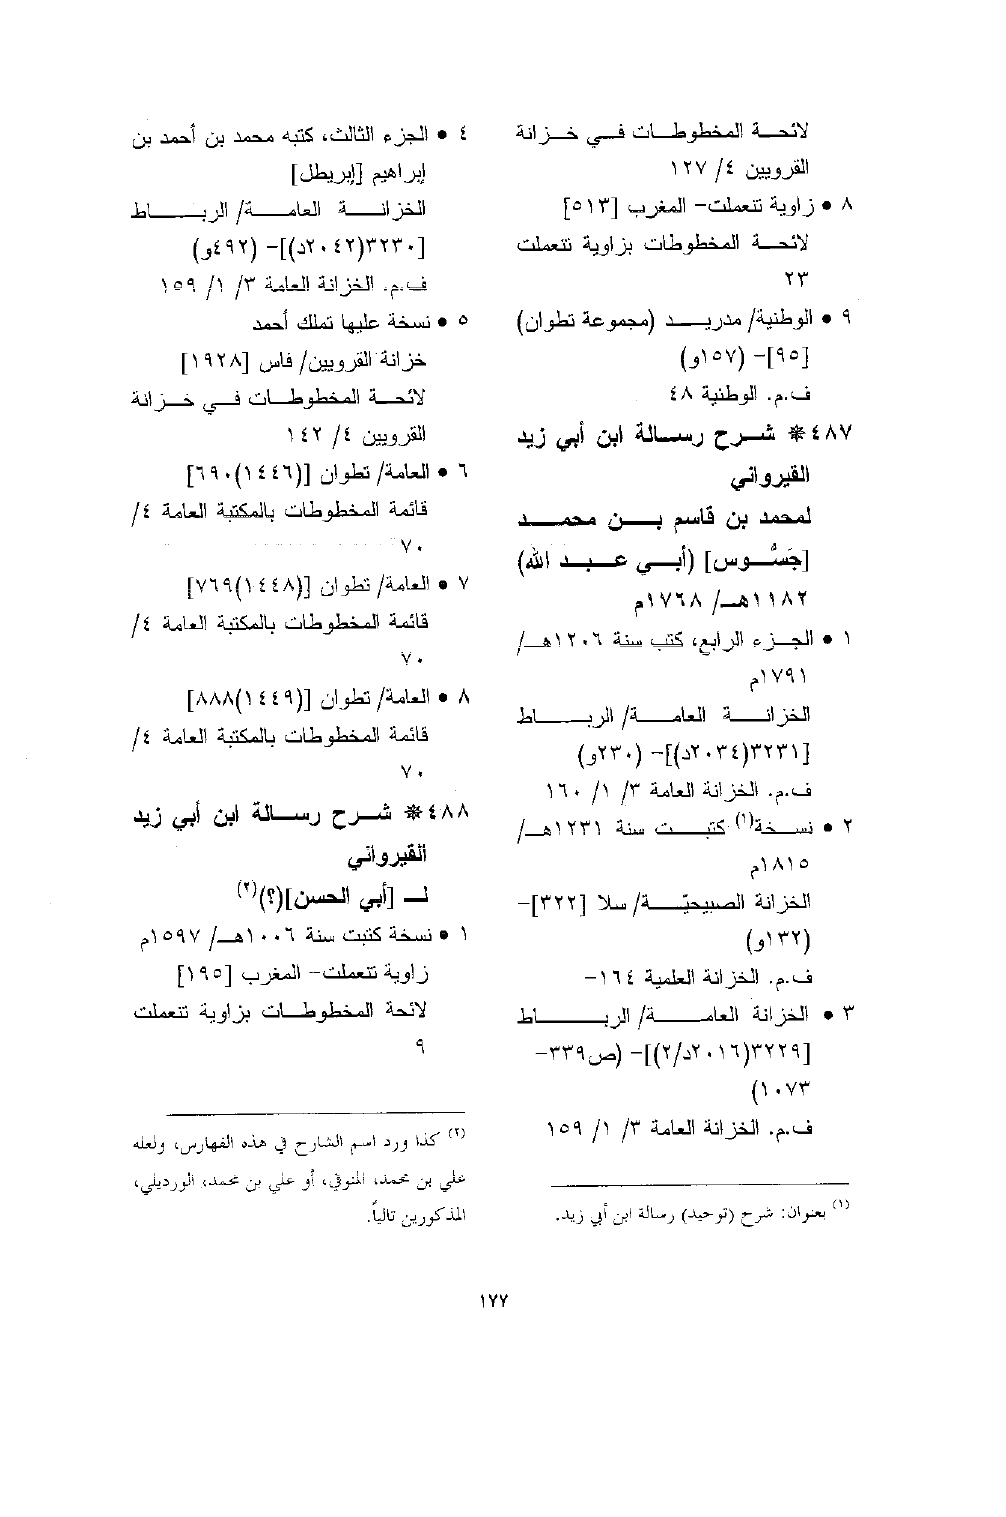 لائحة المخطوطات في خزانة
القرويين ٤/ ١٢٧
٨ • زاوية تنعملت- المغرب [٥١٣]
لائحة المخطوطات بزاوية تنعملت
٢٣
٩ • الوطنية/ مدريد (مجموعة تطوان)
[٩٥]- (١٥٧و)
ف.م. الوطنية ٤٨
٤٨٧* شرح رسالة ابن أبي زيد
القيرواني
لمحمد بن قاسم بن محمد
[جَسُّوس] (أبي عبد الله)
١١٨٢هـ/ ١٧٦٨م
١ • الجزء الرابع، كتب سنة ١٢٠٦هـ/
١٧٩١م
الخزانة العامة/ الرباط
[٣٢٣١(٢٠٣٤د)]- (٢٣٠و)
ف.م. الخزانة العامة ٣/ ١/ ١٦٠
٢ • نسخة(١) كتبت سنة ١٢٣١هـ/
١٨١٥م
الخزانة الصبيحيّة/ سلا [٣٢٢]-
(١٣٢و)
ف.م. الخزانة العلمية ١٦٤-
٣ • الخزانة العامة/ الرباط
[٣٢٢٩(٢٠١٦د/٢)]- (ص٣٣٩-
١٠٧٣)
ف.م. الخزانة العامة ٣/ ١/ ١٥٩
(١) بعنوان: شرح (توحيد) رسالة ابن أبي زيد.
٤ • الجزء الثالث، كتبه محمد بن أحمد بن
إبراهيم [إبريطل]
الخزانة العامة/ الرباط
[٣٢٣٠(٢٠٤٢د)]- (٤٩٢و)
ف.م. الخزانة العامة ٣/ ١/ ١٥٩
٥ • نسخة عليها تملك أحمد
خزانة القرويين/ فاس [١٩٢٨]
لائحة المخطوطات في خزانة
القرويين ٤/ ١٤٢
٦ • العامة/ تطوان [(١٤٤٦)٦٩٠]
قائمة المخطوطات بالمكتبة العامة ٤/
٧٠
٧ • العامة/ تطوان [(١٤٤٨)٧٦٩]
قائمة المخطوطات بالمكتبة العامة ٤/
٧٠
٨ • العامة/ تطوان [(١٤٤٩)٨٨٨]
قائمة المخطوطات بالمكتبة العامة ٤/
٧٠
٤٨٨* شرح رسالة ابن أبي زيد
القيرواني
لـ [أبي الحسن](؟)(٢)
١ • نسخة كتبت سنة ١٠٠٦هـ/ ١٥٩٧م
زاوية تنعملت- المغرب [١٩٥]
لائحة المخطوطات بزاوية تنعملت
٩
(٢) كذا ورد اسم الشارح في هذه الفهارس، ولعله
علي بن محمد، المنوفي، أو علي بن محمد، الورديلي،
المذكورين تالياً.
١٧٧